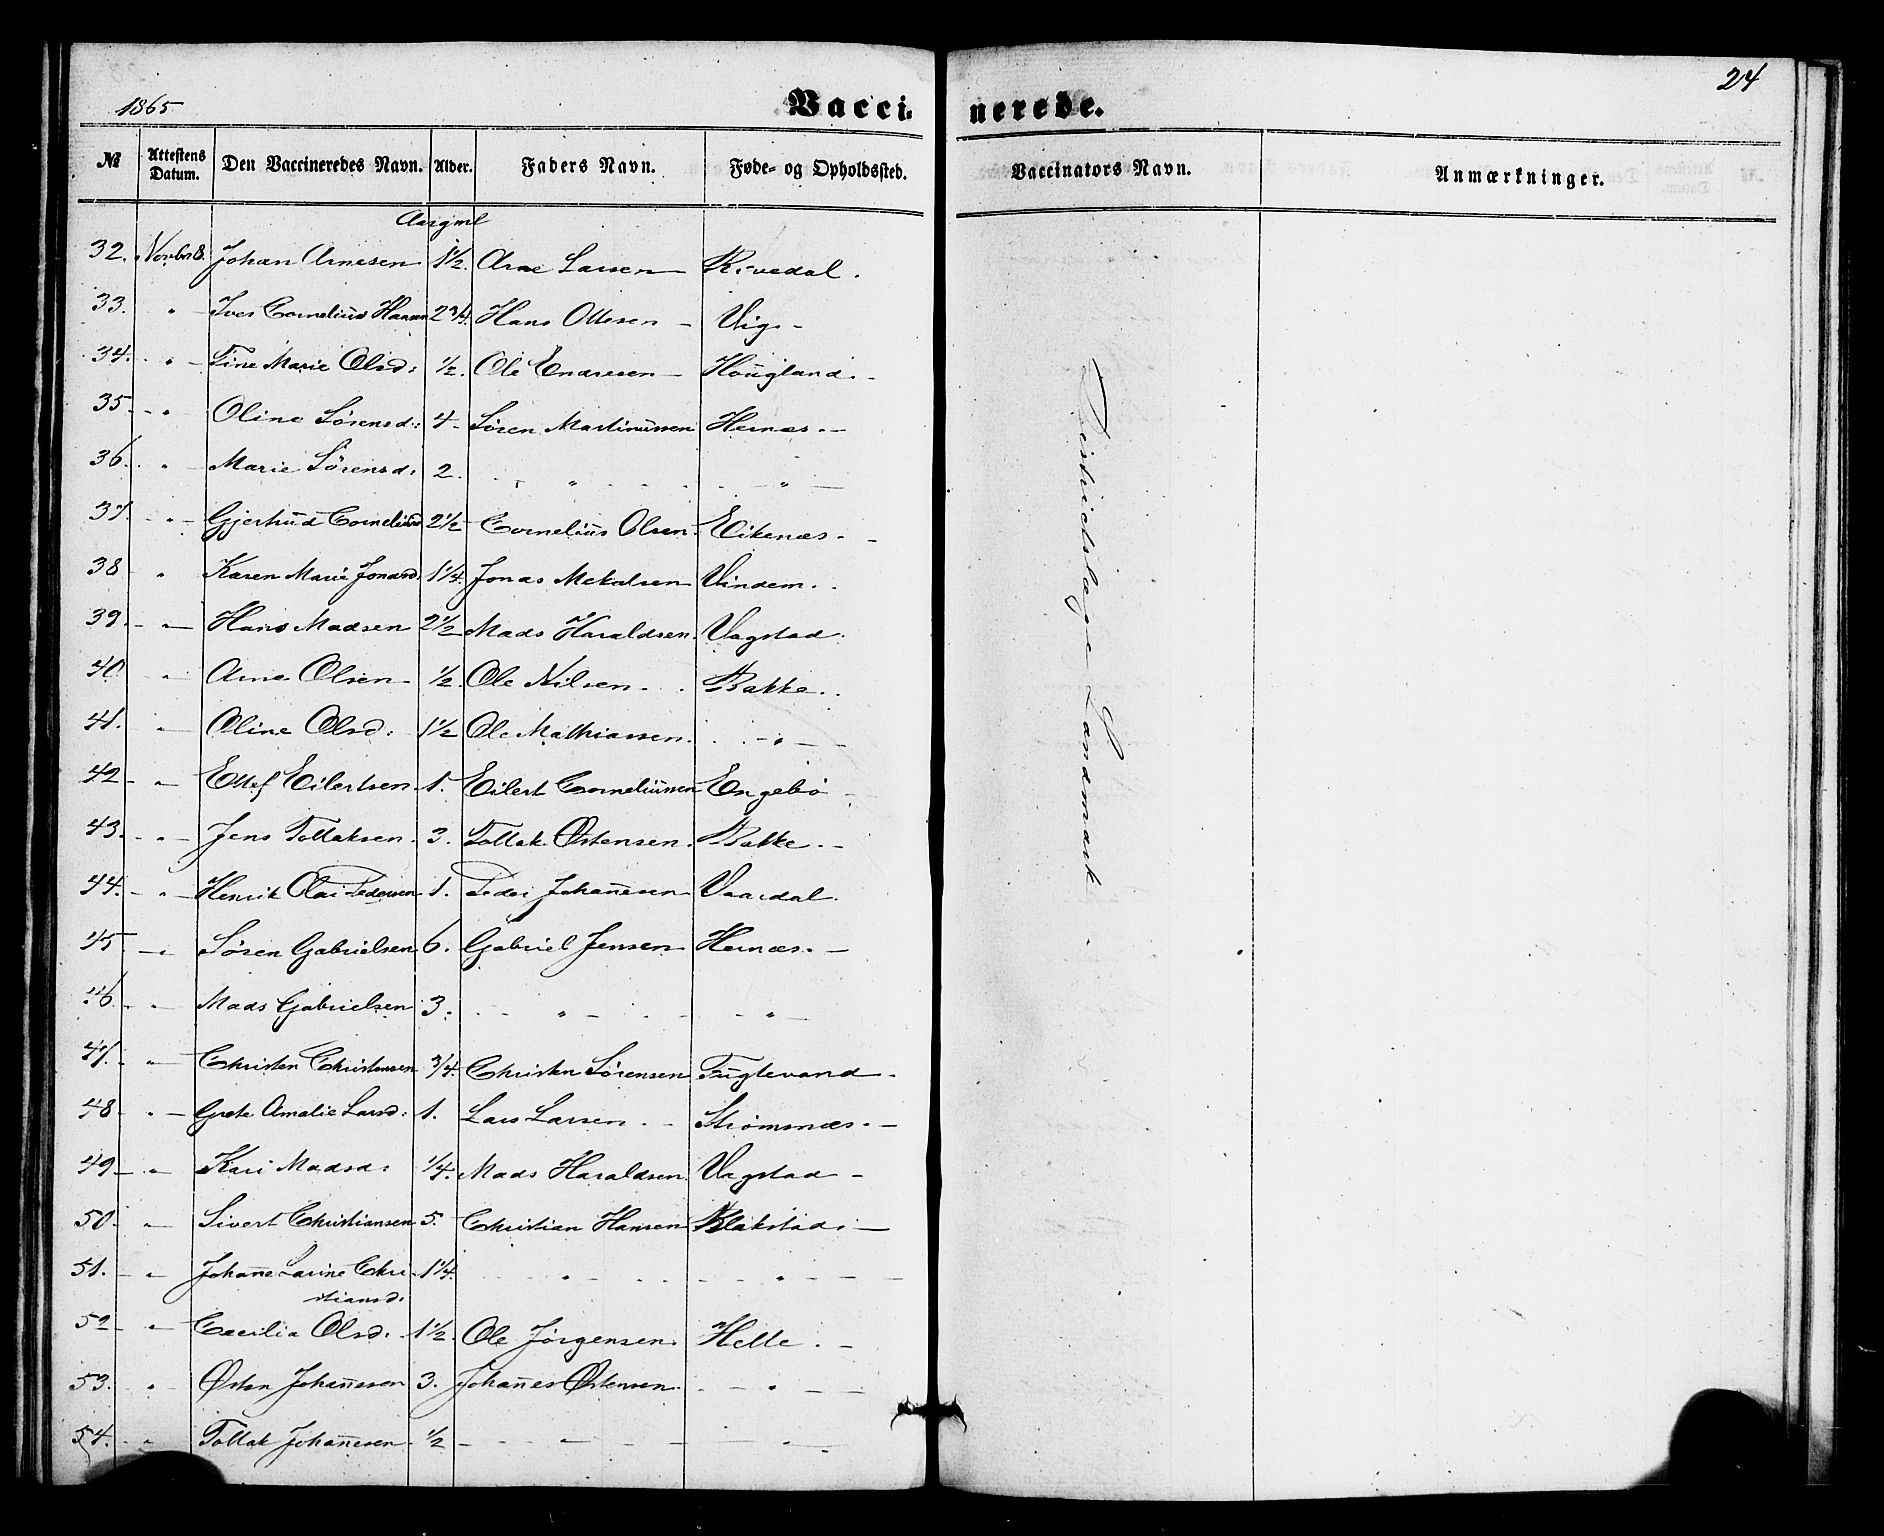 24
1865
Vaccinerede.
№ Attestens Datum. Den Vaccineredes Navn. Alder. Faders Navn. Føde- og Opholdssted. Vaccinators Navn. Anmærkninger.
Aargml
32. Novbr 8. Johan Arnesen 1½. Arne Larsen Rivedal.
33. " Iver Cornelius Hansen 2¾. Hans Ottesen Vig.
34. " Tine Marie Olsd: ½. Ole Endresen Hougland.
35. " Oline Sørensd: 4 Søren Martinussen Hernæs.
36. " Marie Sørensd: 2. " "
37. " Gjertrud Corneliusd 2½ Cornelius Olsen Eikenæs.
38 " Karen Marie Jonasd: 1¼. Jonas Mekalsen Vindem.
39. " Hans Madsen 2½ Mads Haraldsen. Vagstad.
40 " Arne Olsen ½. Ole Nilsen. Bakke.
41. " Oline Olsd: 1½ Ole Mathiassen. "
42 " Ellef Eilertsen 1. Eilert Corneliussen Engebø
43. " Jens Tollaksen. 3. Tollak Østensen. Bakke.
44. " Henrik Olai Pedersen 1. Peder Johannesen Vaardal.
45 " Søren Gabrielsen 6. Gabriel Jensen Hernæs.
46. " Mads Gabrielsen 3. " "
47. " Christen Christensen ¾. Christen Sørensen Fuglevand.
48 " Grete Amalie Larsd: 1. Lars Larsen. Strømsnæs.
49 " Kari Madsd: ¼. Mads Haraldsen Vagstad
50. " Sivert Christiansen 5. Christian Hansen Blakstad.
51. " Johanne Larine Chri- 1¼. " "
stiansd:
52 " Cecilia Olsd. 1½. Ole Jørgensen. Helle.
53. " Østen Johannesen 3. Johannes Østensen. "
54. " Tollak Johannesen ½ " "
Districtslæge Landmark